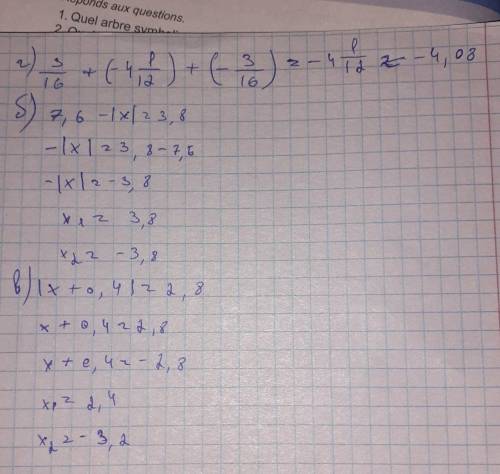 Réponds aux questions.
1. Quel arbre symboli
г) 3/16 + (-4 1/12) + (-3/16) = -4 1/12 ≈ -4,08
б) 7,6 - |x| = 3,8
-|x| = 3,8 - 7,6
-|x| = -3,8
x₁ = 3,8
x₂ = -3,8
в) |x + 0,4| = 2,8
x + 0,4 = 2,8
x + 0,4 = -2,8
x₁ = 2,4
x₂ = -3,2